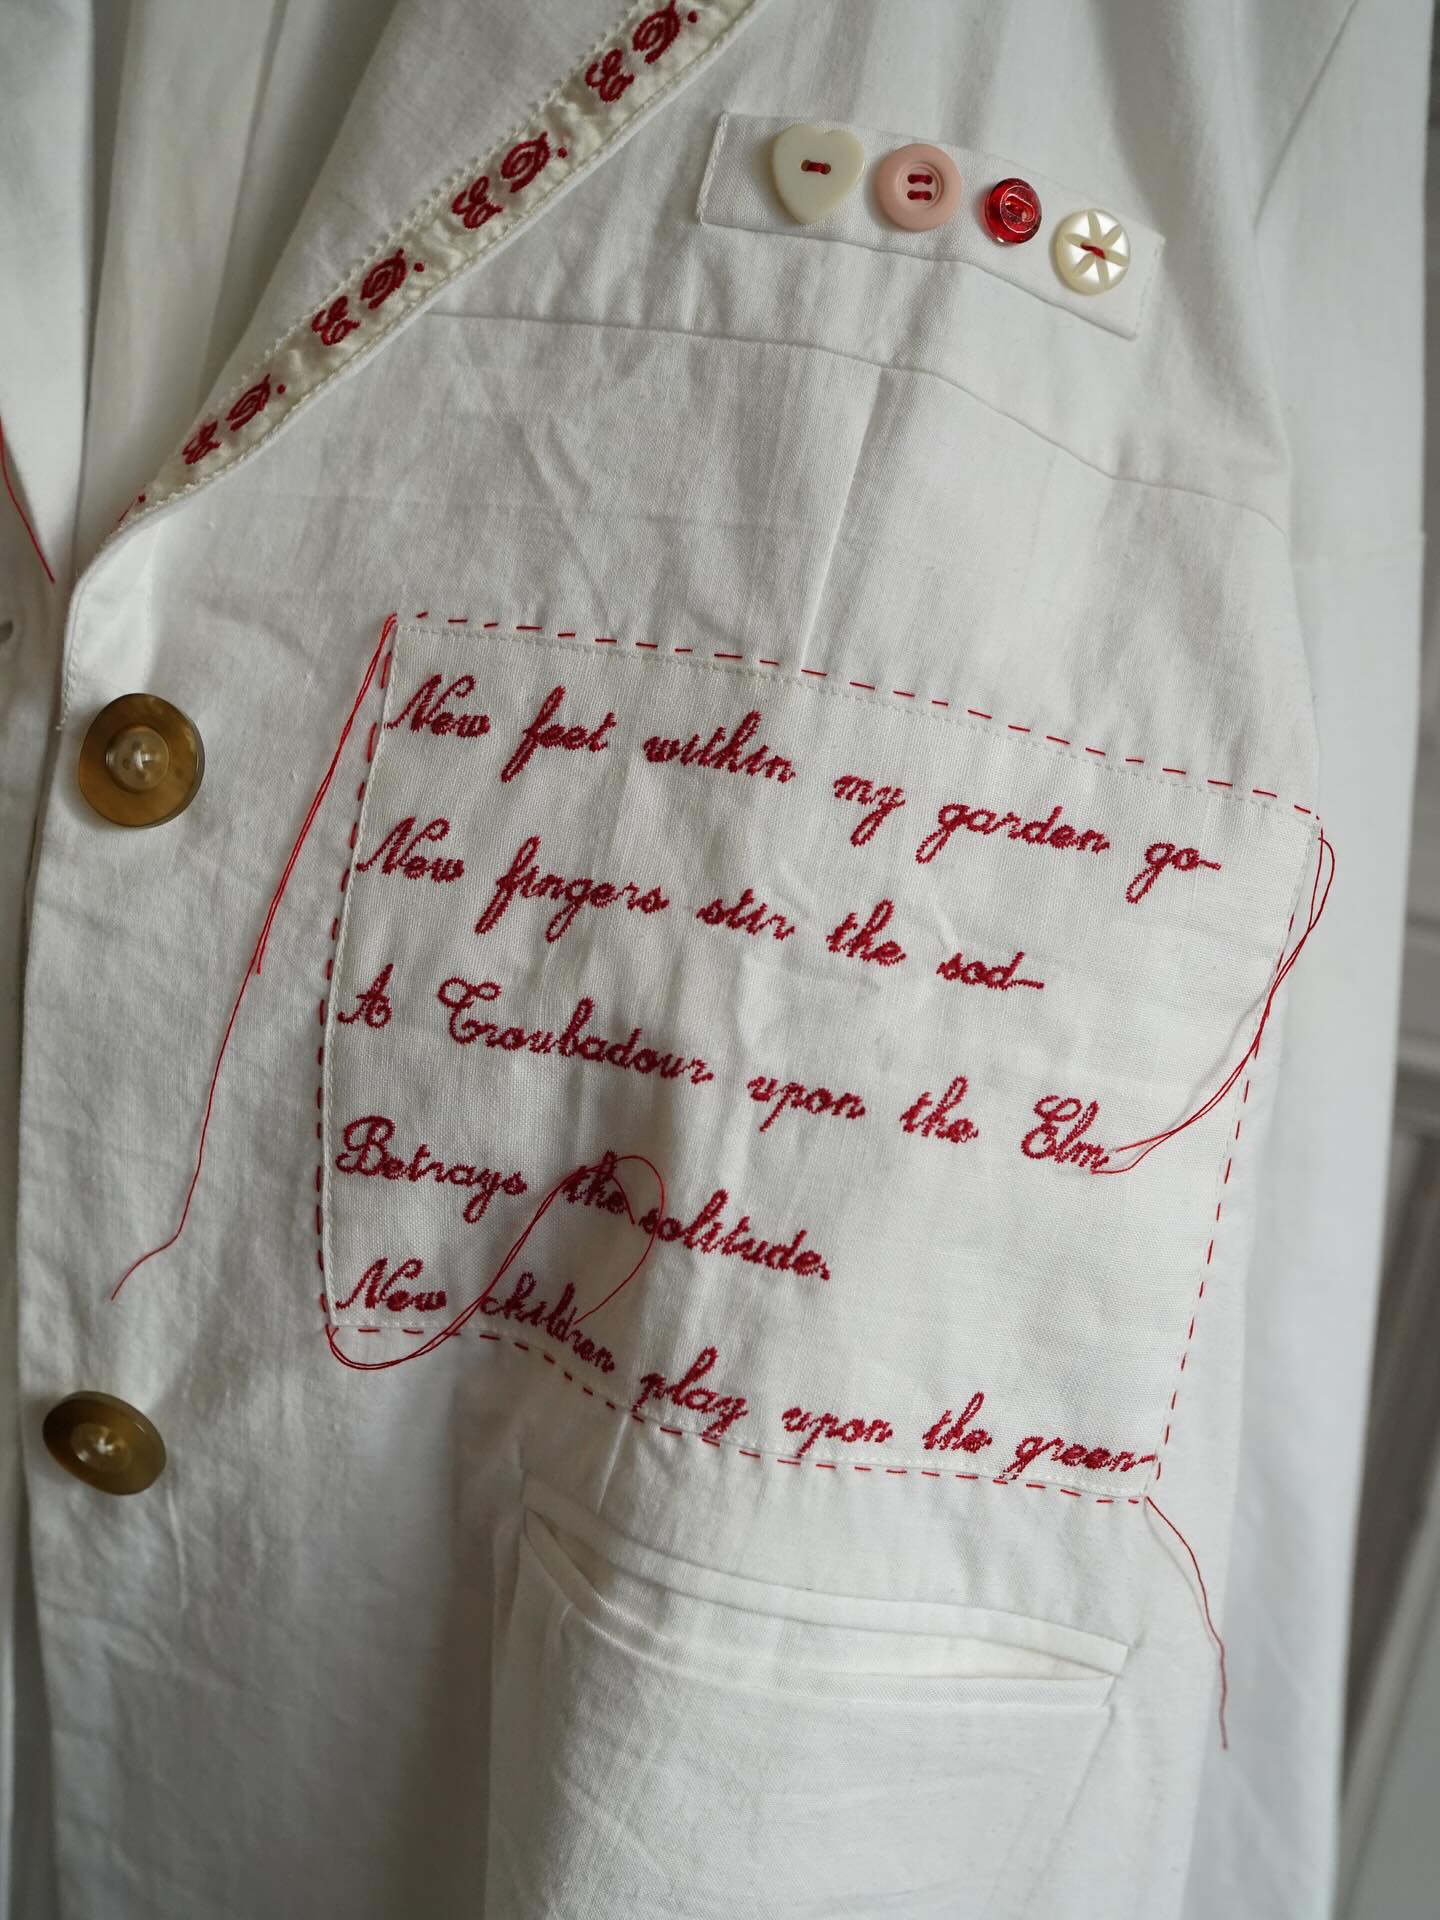 E D.
E D.
E D.
E D.
New feet within my garden go—
New fingers stir the sod—
A Troubadour upon the Elm
Betrays the solitude.
New children play upon the green—